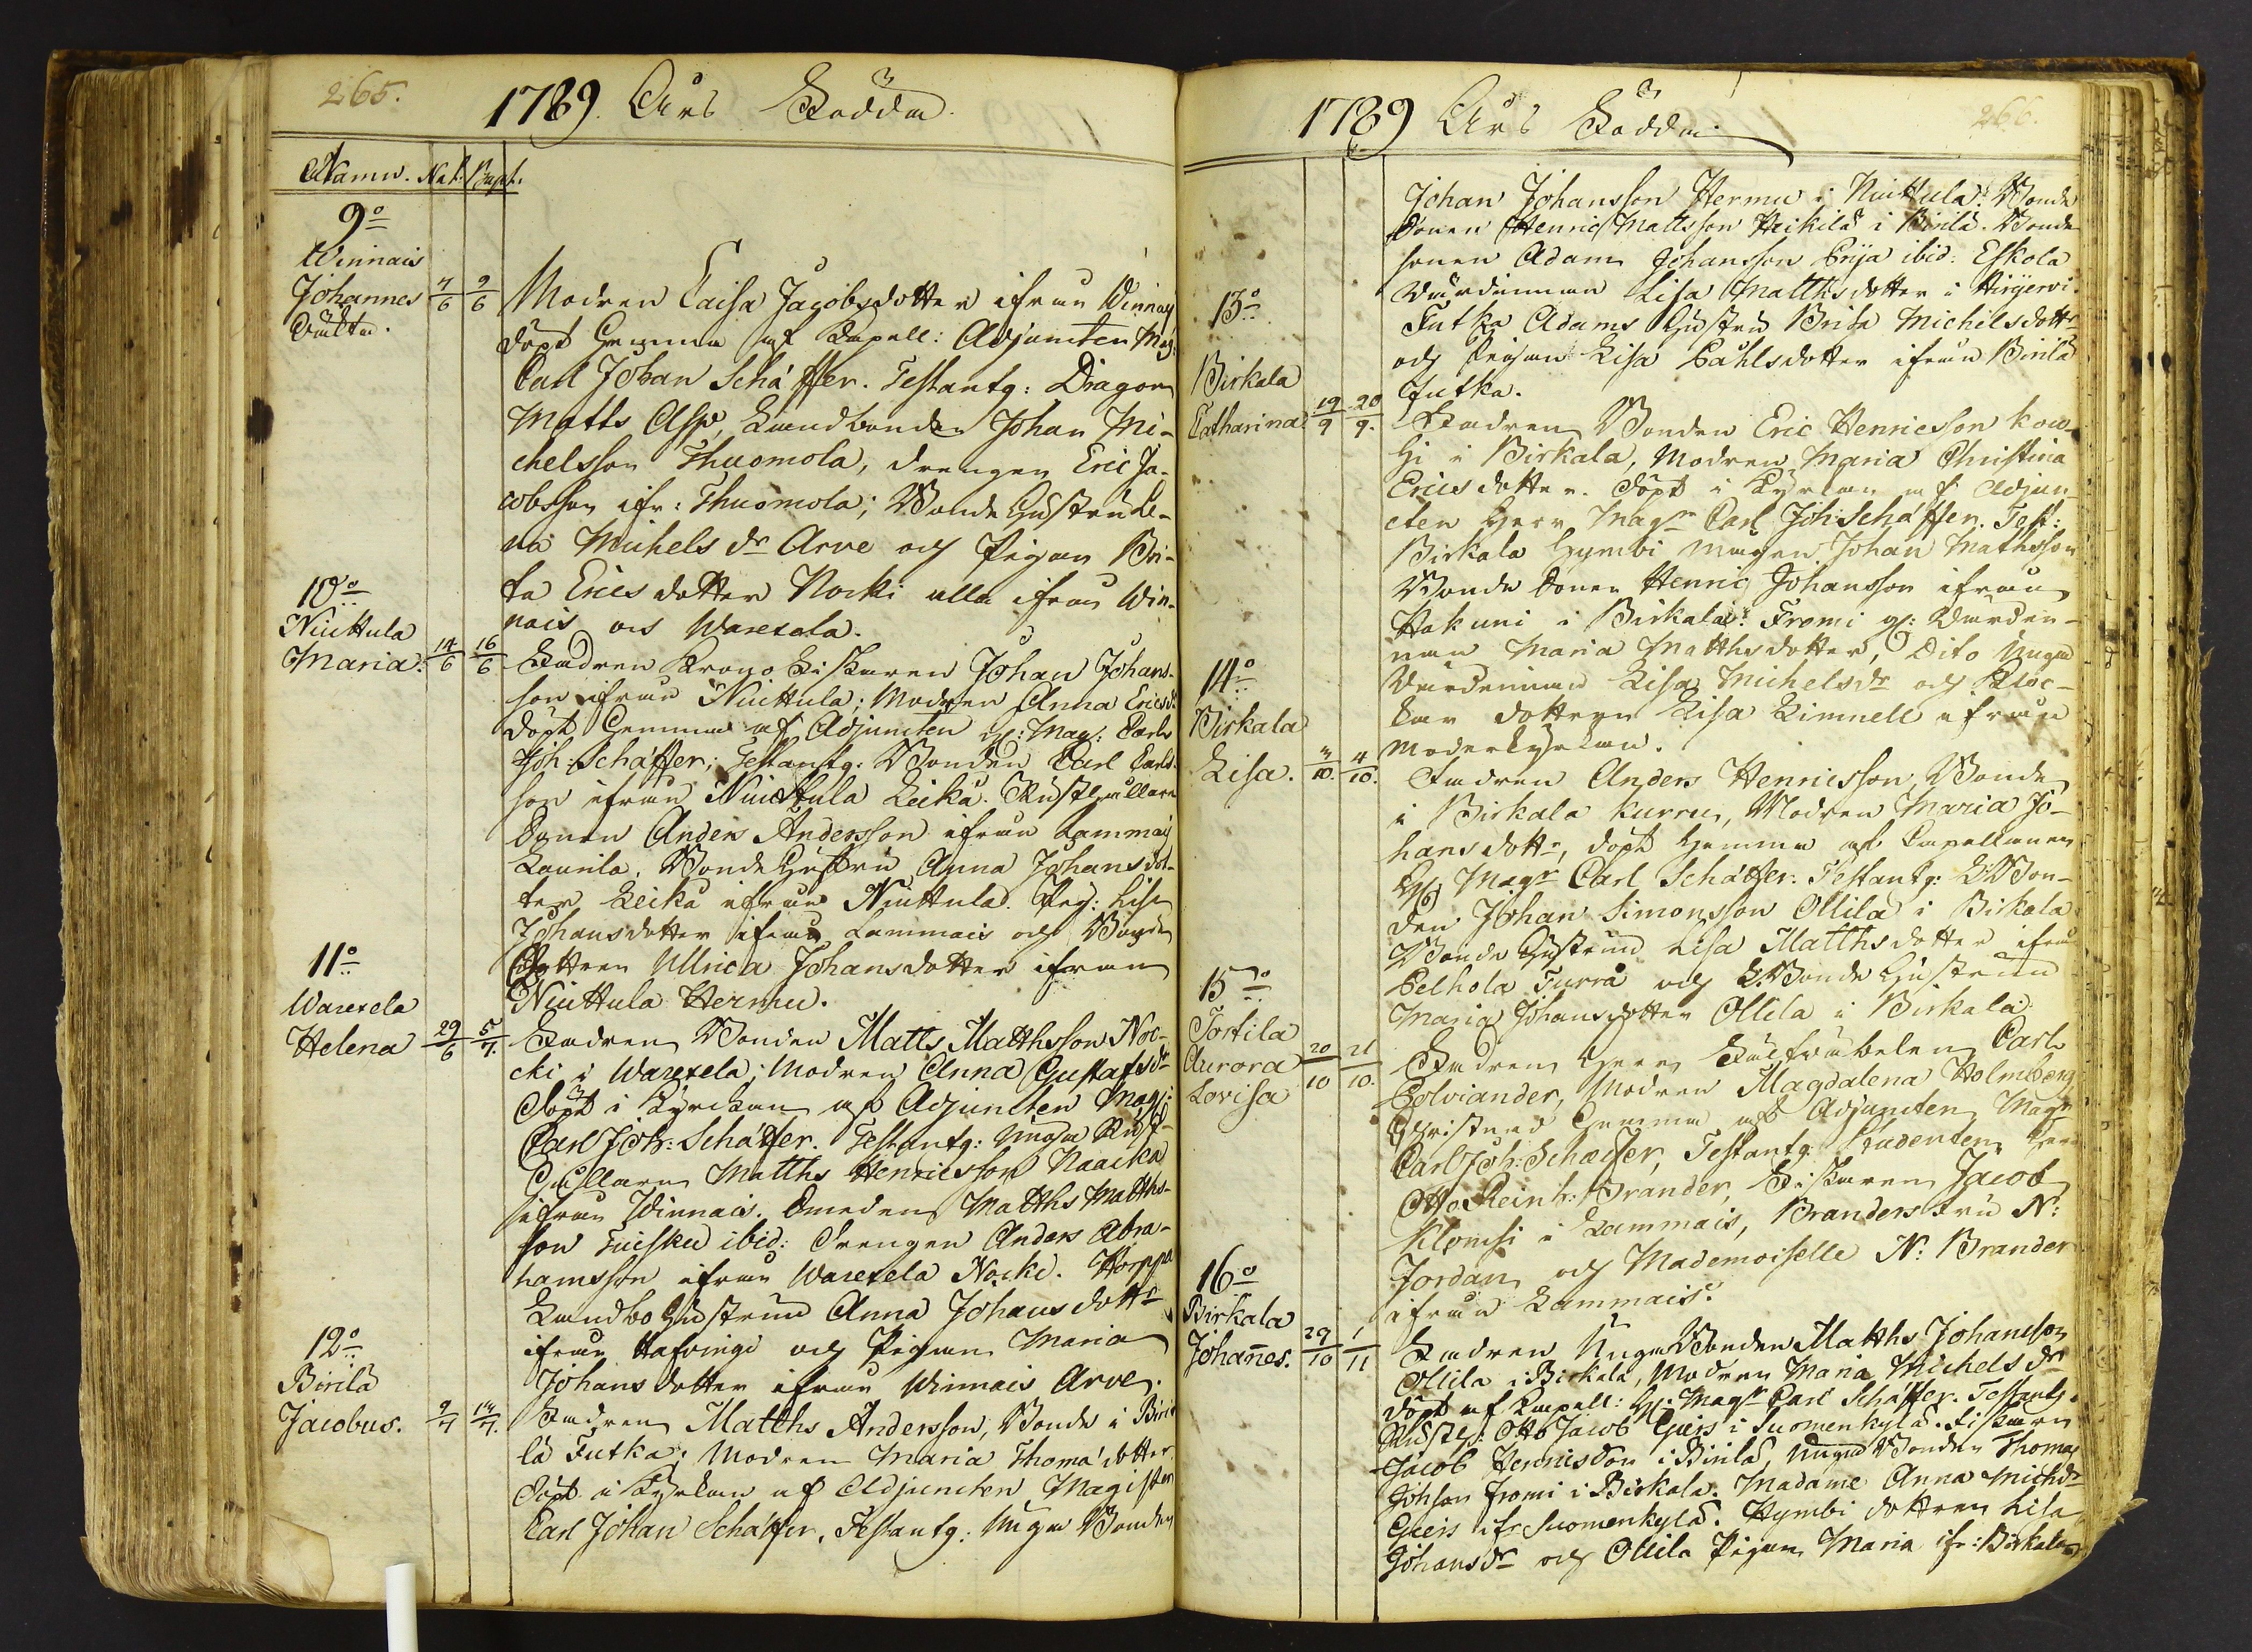 265.
1789. Åhrs Födda.
Namn. Nat. Bapt.
9o
Winnais
Johannes 7/6 9/6
Oäkta.
Modren Caisa Jacobsdotter ifrån Winnais
döpt hemma af Capell: Adjuncten Mag:
Carl Johan Schäffer. Testantg: Dragon
Matts Asp, Landbonden Johan Mi-
chelsson Thuomola, drengen Eric Ja-
cobsson ifr: Thuomola; Bonde Hustru Le-
na Michels dr Arve och Pigan Bri-
ta Erics dotter Nocki alla ifrån Win-
nais och Warexela.
10o
Niuttula
Maria: 14/6 16/6
Fadren Krono Fiskaren Johan Johans-
son ifrån Niuttula; Modren Anna Ericsdr
döpt hemma af Adjuncten H: Mag: Carl
Joh: Schäffer; Testantg: Bonden Carl Carls-
son ifrån Niuttula Leikä. Rusthållare
Sonen Anders Andersson ifrån Lammais
Laurila. Bonde Hustru Anna Johansdot-
ter Leikä ifrån Niuttula. Pig: Lisa
Johansdotter ifrån Lammais och Bonde
Dottren Ullrica Johansdotter ifrån
Niuttula Hermu.
11o
Warexela
Helena 29/6 5/7.
Fadren Bonden Matts Matthsson Noc-
cki i Warexela; Modren Anna Gustafsdr
Döpt i Kyrckan af Adjuncten Mag:
Carl Joh: Schäffer. Testantg: Unga Rust-
Hållaren Matths Henricsson Naacka
ifrån Winnais. Smeden Matths Matths-
son Tuisku ibid: Drengen Anders Abra-
hamsson ifrån Warexela Nocki. Horppo
Landbo Hustrun Anna Johans dottr
ifrån Hafvinge och Pigan Maria
Johans dotter ifrån Winnais Arve.
12o
Birilä
Jacobus. 9/7 14/7.
Fadren Matths Andersson, Bonde i Biri-
lä Jutka; Modren Maria Thomä dotter
Döpt i Kyrckan af Adjuncten Magister
Carl Johan Schäffer, Testantg: Unga Bonden
1789 Åhrs Födda.
266.
Johan Johansson Hermu i Niuttula: Bonde
Sonen Henric Mattsson Heikilä i Birilä. Bonde
sonen Adam Johansson Erija ibid: Eskola
Värdinnan Lisa Matths dotter i Pirijervi.
Jutka Adams Hustru Brita Michelsdottr
och Pigan Lisa Påhlsdotter ifrån Birilä
Jutka.
13o
Birkala
Catharina 19/9 20/9.
Fadren Bonden Eric Henricsson Kow-
hi i Birkala, Modren Maria Christina
Erics dotter. Döpt i Kyrckan af Adjun-
cten Herr Magr Carl Joh: Schäffer. Test:
Birkala Hymbi mågen Johan Mathsson
Bonde Sonen Henric Johansson ifrån
Hakuni i Birkala: Fromi g: Värdin-
nan Maria Matthsdotter, Dito Unga
Värdinnan Lisa Michelsdr och Kloc-
kar dottren Lisa Limnell ifrån
Moderkyrckan.
14o
Birkala
Lisa. 3/10. 4/10.
Fadren Anders Henricsson, Bonde
i Birkala Kurru, Modren Maria Jo-
hansdottr, döpt hemma af Capellanen
H: Magr Carl Schäffer. Testantg: L: Bon-
den Johan Simonsson Ollila i Birkala
Bonde Hustrun Lisa Matthsdotter ifrån
Pelhola Turra och L: Bonde Hustrun
Maria Johansdotter Ollila i Birkala.
15o
Tortila
Aurora 20/10 21/10.
Lovisa
Fadren Herr Carl
Polviander, Modren Magdalena Holmberg
Christnad hemma af Adjuncten Magr
Carl Joh: Schæffer, Testantg: Studenten Herr
Otto Reinh: Brander, Fiskaren Jacob
Klomsi i Lammais, Branders Fru N:
Jordan och Mademoiselle N: Brander
ifrån Lammais.
16o
Birkala
Johañes. 29/10 1/11
Fadren Unga Bonden Matths Johansson
Ollila i Birkala, Modren Maria Michels dr
döpt af Capell: H: Magr Carl Schäffer. Testantg:
Rusth: Otto Jacob Geers i Suomenkylä. Fiskaren
Jacob Hennisdon i Birilä, Unga Bonden Thomas
Johson Fromi i Birkala. Madame Anna Michdr
Geers ifr Suomenkylä. Hymbi dottren Lisa
Johansdr och Ollila Pigan Maria ifr: Birkala